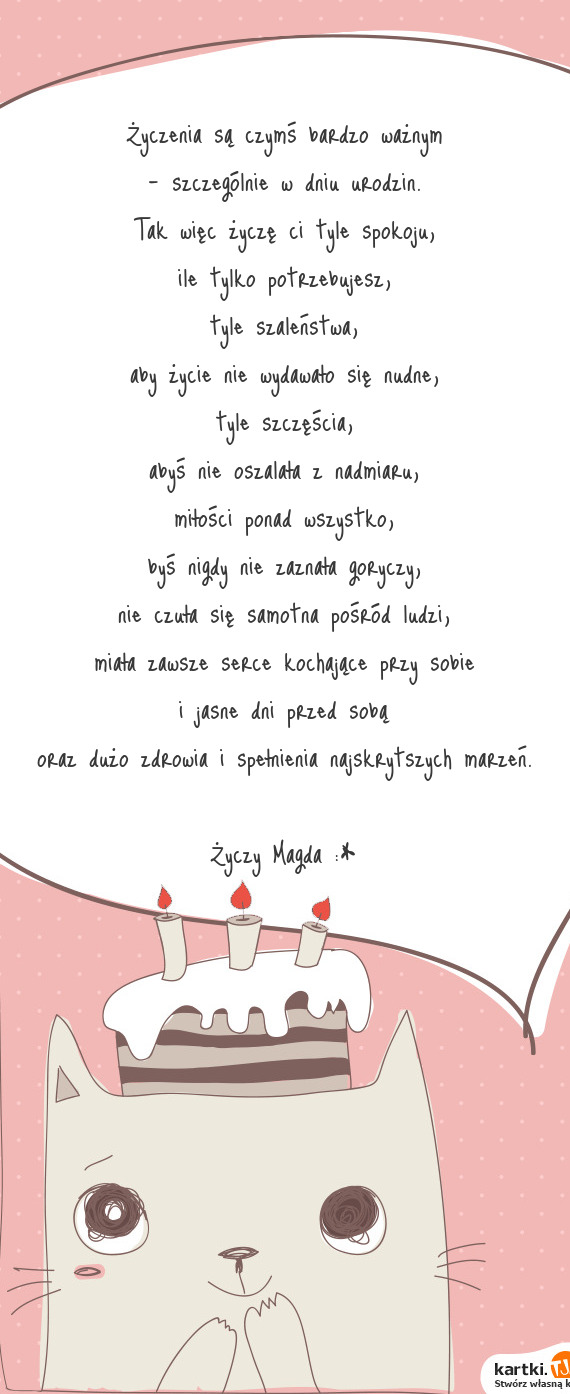 Życzenia są czymś bardzo ważnym
- szczególnie w dniu urodzin.
Tak więc życzę ci tyle spokoju,
ile tylko potrzebujesz,
tyle szaleństwa,
aby życie nie wydawało się nudne,
tyle szczęścia,
abyś nie oszalała z nadmiaru,
miłości ponad wszystko,
byś nigdy nie zaznała goryczy,
nie czuła się samotna pośród ludzi,
miała zawsze serce kochające przy sobie
i jasne dni przed sobą
oraz dużo zdrowia i spełnienia najskrytszych marzeń.
Życzy Magda :*
kartki.TJ
Stwórz własną k